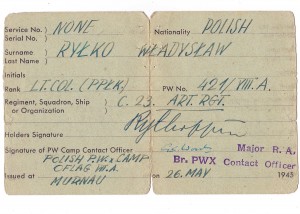 Service No. } NONE Nationality POLISH
Serial No.
Surname RYŁKO WŁADYSŁAW
Initials
Rank LT.COL. (PPŁK) PW No. 421/VIII.A
Regiment, Squadron, Ship
or Organization } C. 23. ART. RGT.
Holders Signature
Signature of PW Camp Contact Officer Major R. A.
POLISH P.W.x CAMP Br. PWX Contact Officer
OFLAG VII.A
Issued at MURNAU on 26. MAY 1945